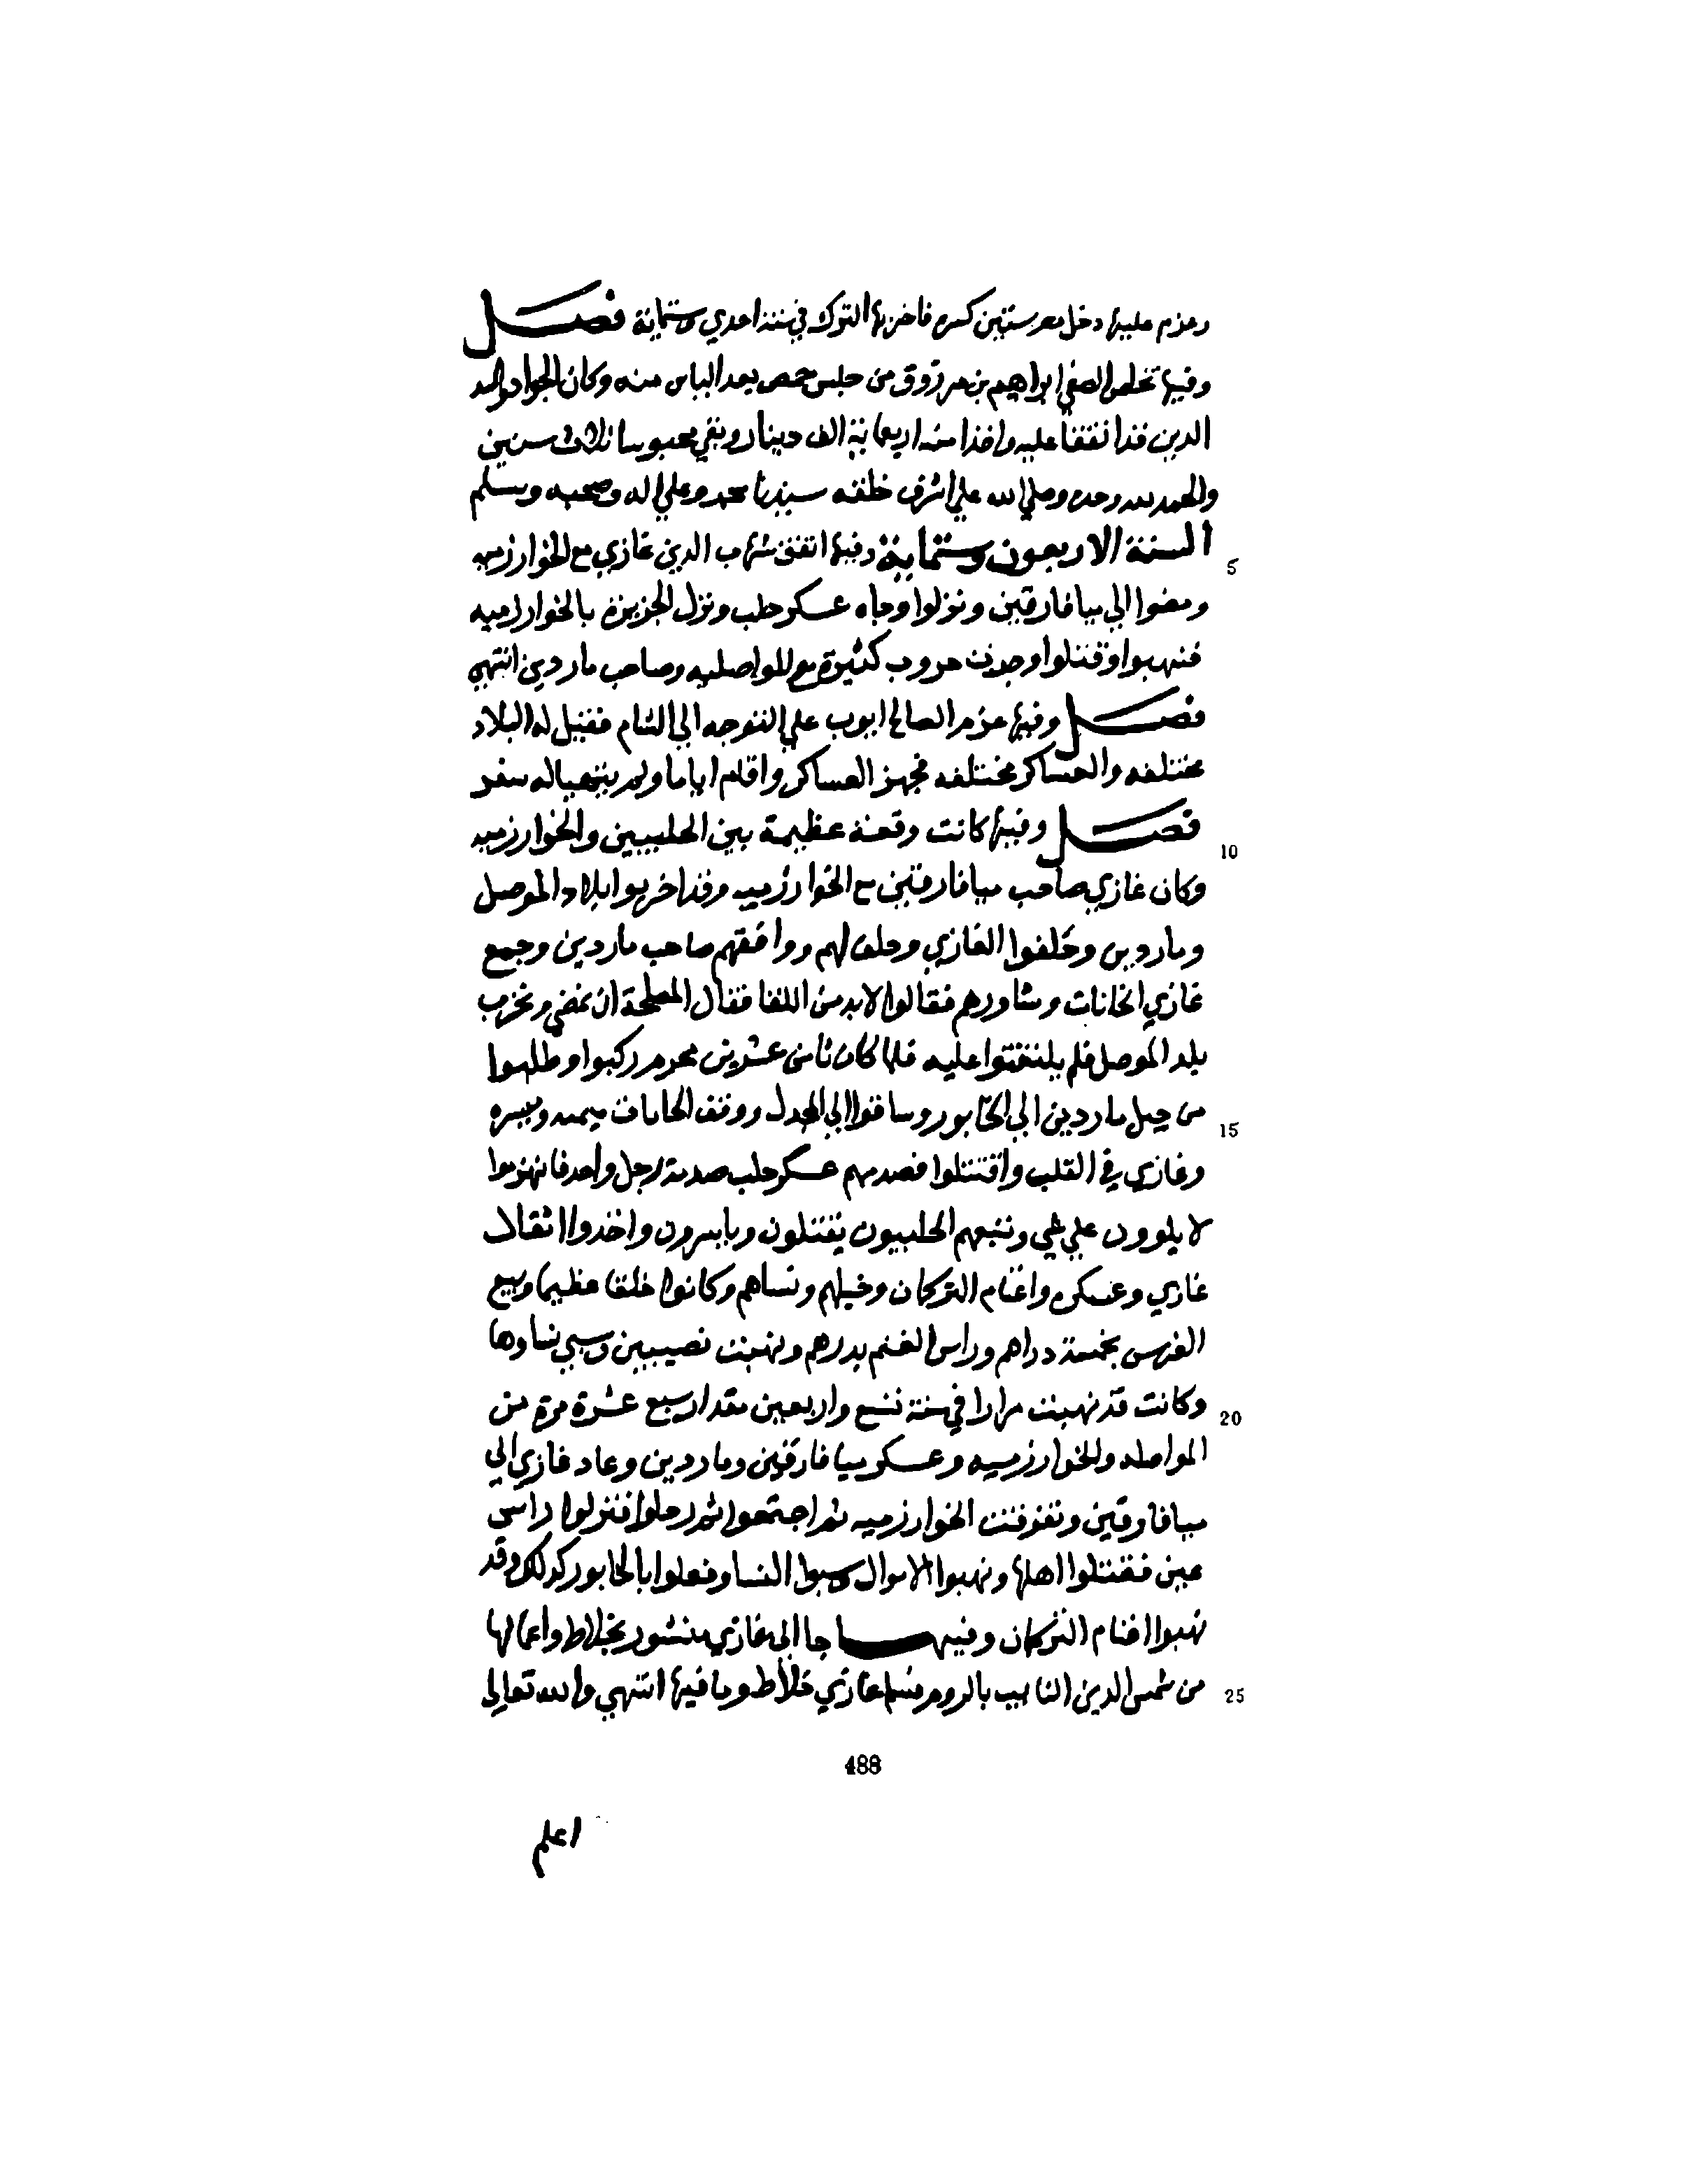 وغرم عليها دخل مصر سنتين كسره فاخربها الترك في سنة احدي وستماية فصل
وفيها تخلص الصفي ابراهيم بن مرزوق من حبس حمص بعد الياس منه وكان الجواد واسد
الدين قد اتفقا عليه واخذا منه اربعماية الف دينار وبقي محبوسا ثلاث سنين
والحمد لله وحده وصلي الله علي اشرف خلقه سيدنا محمد وعلي اله وصحبه وسلم
السنة الاربعون وستماية وفيها اتفق شهاب الدين غازي مع الخوارزميه
5
ومضوا الي ميافارقين ونزلوا وجاه عسكر حلب ونزل الجزيزة بالخوارزميه
فنهبوا وقتلوا وجرت حروب كثيرة مع المواصليه وصاحب ماردين انتهي
فصل وفيها عزم الصالح ايوب علي التوجه الي الشام فقيل له البلاد
مختلفه والعساكر مختلفه فجهز العساكر واقام اياما ولم يتهيا له سفر
فصل وفيها كانت وقعة عظيمة بين الحلبيين والخوارزميه
10
وكان غازي صاحب ميافارقين مع الخوارزميه وقد اخربوا بلاد الموصل
وماردين وحلفوا الغازي وحلف لهم ووافقهم صاحب ماردين وجمع
غازي الخانات وشاورهم فقالوا لابد من اللقا فقال المصلحة ان نمضي ونخرب
بلد الموصل فلم يلتفتوا عليه فلما كان ثامن عشرين محرم ركبوا وطلبوا
من جبل ماردين الي الخابور وساقوا الي المجدل ووقف الخانات ميمنه وميسره
15
وغازي في القلب واقتتلوا فصدمهم عسكر حلب صدمة رجل واحد فانهزموا
لا يلوون علي شي وتبعهم الحلبيون يقتلون ويايسرون واخذوا اثقال
غازي وعسكره واغنام التركمان وخيلهم ونساهم وكانوا خلقا عظيما وبيع
الفرس بخمسة دراهم وراس الغنم بدرهم ونهبت نصيبين وسبي نساوها
وكانت قد نهبت مرارا في سنة تسع واربعين مقدار سبع عشرة مرة من
20
المواصله والخوارزميه وعسكر ميافارقين وماردين وعاد غازي الي
ميافارقين وتفرقت الخوارزميه ثم اجتمعوا ثم رحلوا فنزلوا راس
عين فقتلوا اهلها ونهبوا الاموال وسبوا النسا وفعلوا بالخابور كذلك وقد
نهبوا اغنام التركمان وفيها جا الي غازي منشور بخلاط واعمالها
من شمس الدين النايب بالروم فتسلم غازي خلاط وما فيها انتهي والله تعالي
25
488
اعلم